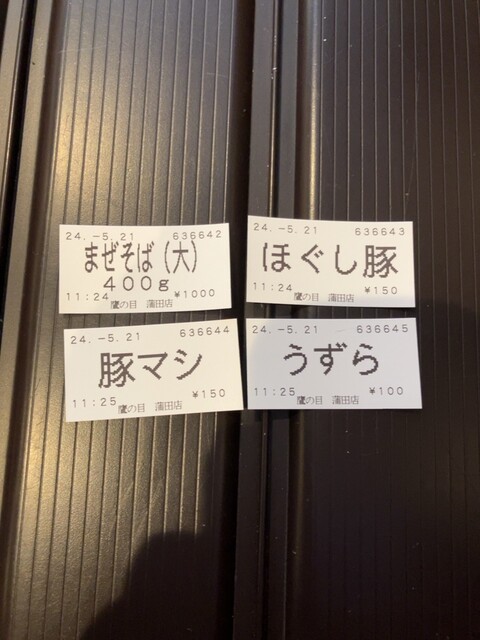 24.-5.21 636642
まぜそば(大)
400g
11:24 ¥1000
鷹の目 蒲田店
24.-5.21 636643
ほぐし豚
11:24 ¥150
鷹の目 蒲田店
24.-5.21 636644
豚マシ
11:25 ¥150
鷹の目 蒲田店
24.-5.21 636645
うずら
11:25 ¥100
鷹の目 蒲田店